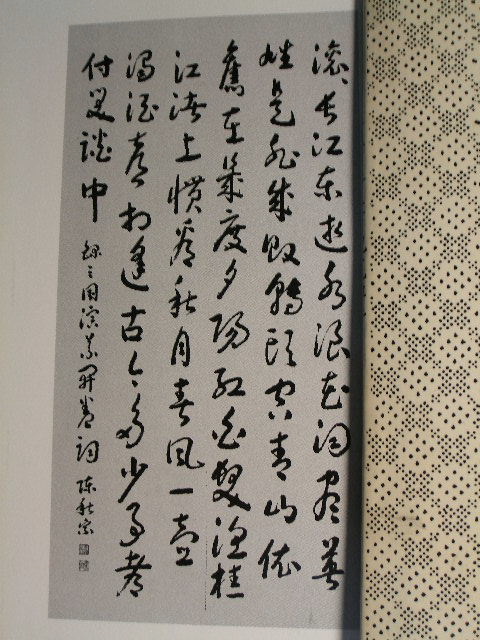 滚々长江东逝水浪花淘尽英
雄是非成败转头空青山依
舊在几度夕阳红白发渔樵
江渚上惯看秋月春风一壶
浊酒喜相逢古今多少事都
付笑谈中 录三国演义开卷词 陈秋